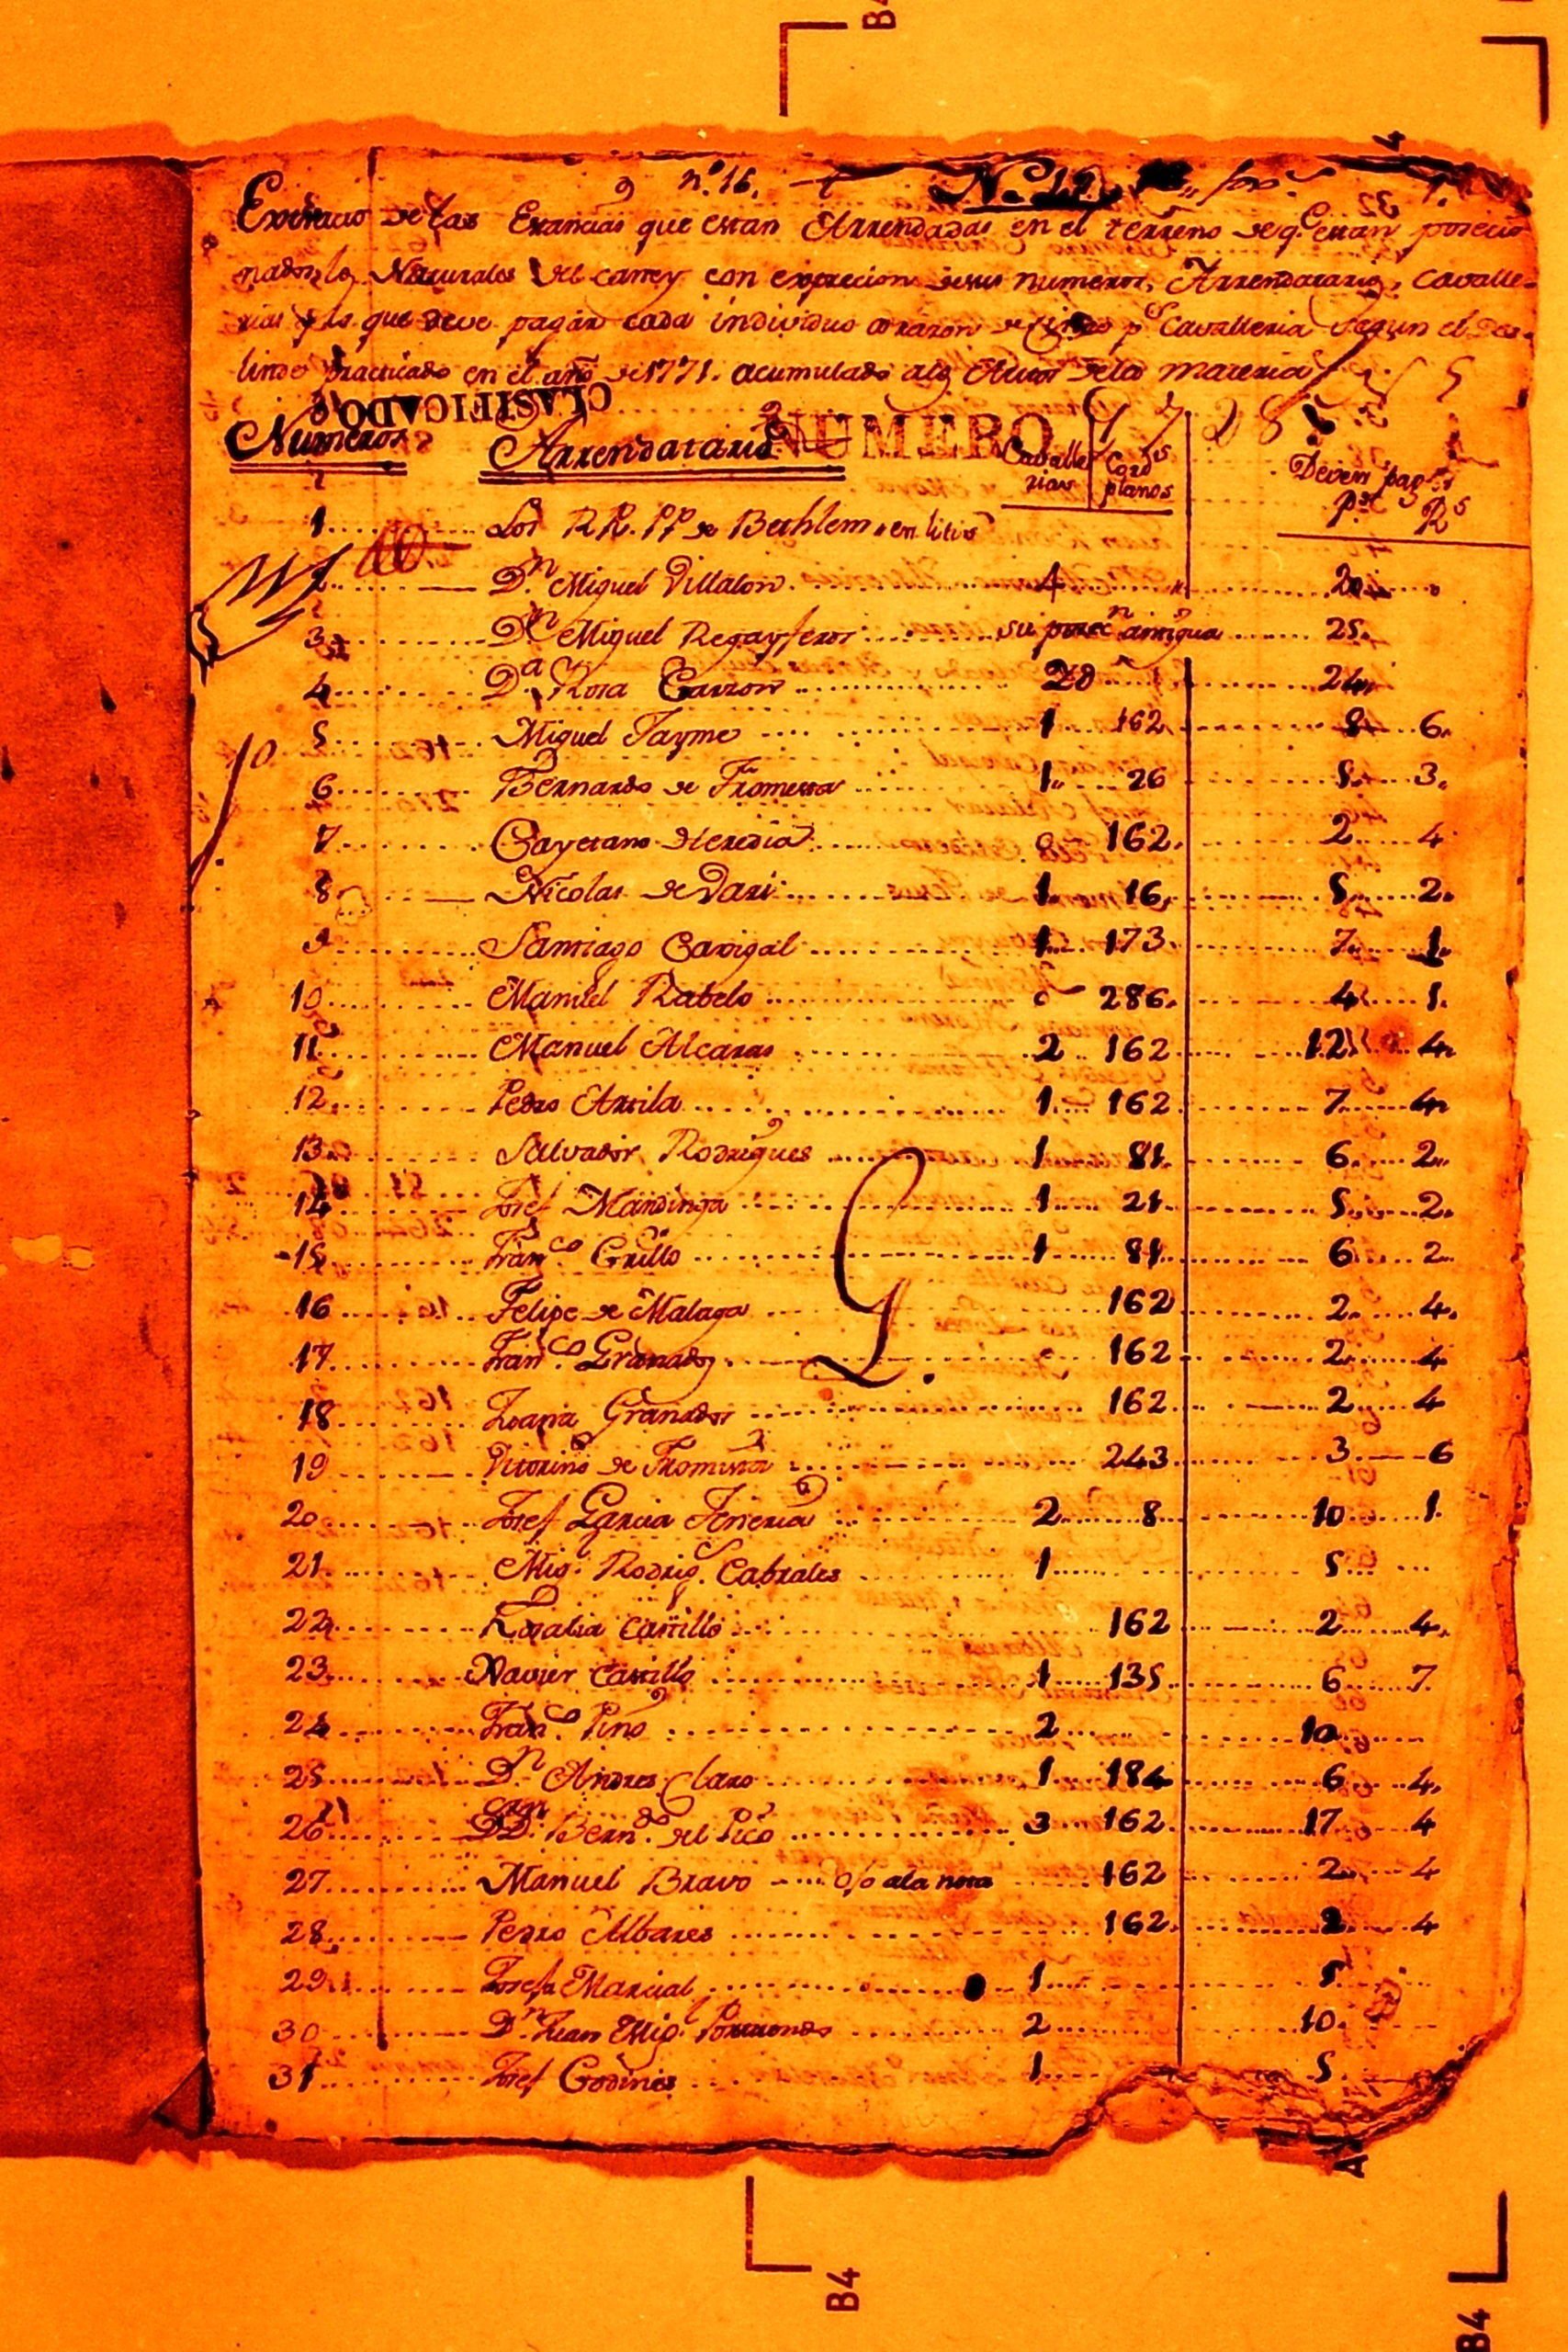 B4
nº.16. Nº 12
Extracto de las Estancias que estan Arrendadas en el terreno de q.e estan posecio
nados los Naturales del Caney con exprecion de sus numeros, Arrendatarios, Cavalle-
rias y lo que deve pagar cada individuo a razon de cinco p.s Cavalleria segun el Des-
linde practicado en el año de 1771. acumulado a los Autos de la materia
CLASIFICADO
NUMERO 97 28
Numeros Arrendatarios Cavalle rias Cord.s planos Deven pag.r P.s R.s
1 Los RR. PP. de Bethlem en litis
2 D.n Miguel Villalon 4 20
3 D.n Miguel Regayferos su posec.n antigua 25
4 D.a Rosa Garzon 28 24
5 Miguel Jayme 1 162 8 6
6 Bernardo de Fromesta 1 26 5 3
7 Cayetano Heredia 0 162 2 4
8 Nicolas de Dari 1 16 5 2
9 Santiago Carvigal 1 173 7 1
10 Manuel Rabelo 0 286 4 1
11 Manuel Alcaras 2 162 12 4
12 Pedro Arsila 1 162 7 4
13 Salvador Rodrigues 1 81 6 2
14 Josef Mandinga 1 21 5 2
15 Fran.co Grillo 1 81 6 2
16 Felipe de Malaga 162 2 4
17 Fran.co Granados 162 2 4
18 Joana Granados 162 2 4
19 Vitorino de Fromista 243 3 6
20 Josef Garcia Teneria 2 8 10 1
21 Mig.l Rodrig.s Cabrales 1 5
22 Rosalia Castillo 162 2 4
23 Xavier Castillo 1 135 6 7
24 Fran.co Pino 2 10
25 D.n Andres Claro 1 184 6 4
26 D.D. Bern.do del Pico 3 162 17 4
27 Manuel Bravo ojo a la nota 162 2 4
28 Pedro Albares 162 2 4
29 Josefa Marcial 1 5
30 D.n Juan Mig.l Portuondo 2 10
31 Josef Godines 1 5
B4
B4